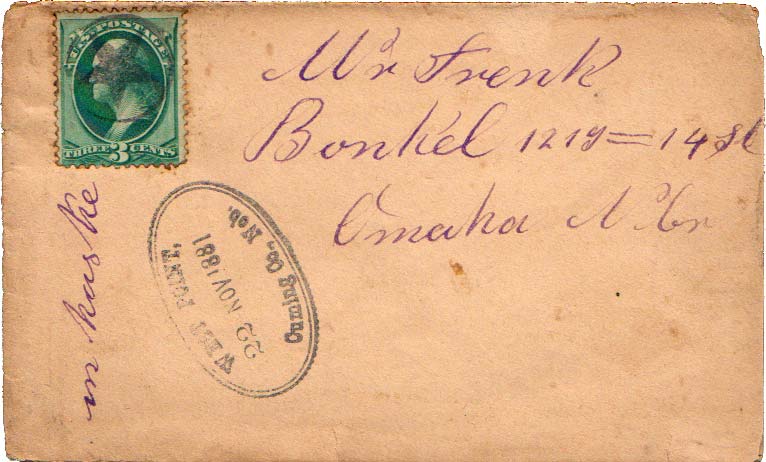 U.S. POSTAGE
THREE 3 CENTS
Mr Frenk
Bonkel 1219=14 St
Omaha
in kuske
WEST POINT,
22 NOV 1881
Cuming Co., Neb.